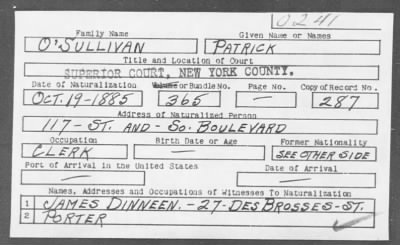 0241
Family Name Given Name or Names
O'SULLIVAN PATRICK
Title and Location of Court
SUPERIOR COURT, NEW YORK COUNTY.
Date of Naturalization Volume or Bundle No. Page No. Copy of Record No.
OCT. 19-1885 365 — 287
Address of Naturalized Person
117-ST. AND-SO. BOULEVARD
Occupation Birth Date or Age Former Nationality
CLERK — SEE OTHER SIDE
Port of Arrival in the United States Date of Arrival
— —
Names, Addresses and Occupations of Witnesses To Naturalization
1 JAMES DINNEEN.-27-DESBROSSES-ST.
2 PORTER